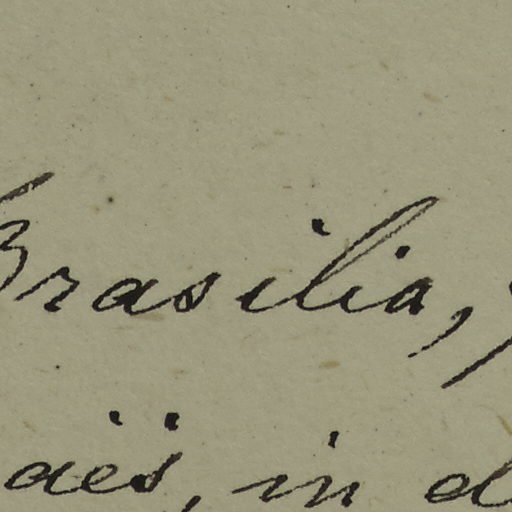 Brasilia,
aës, in d